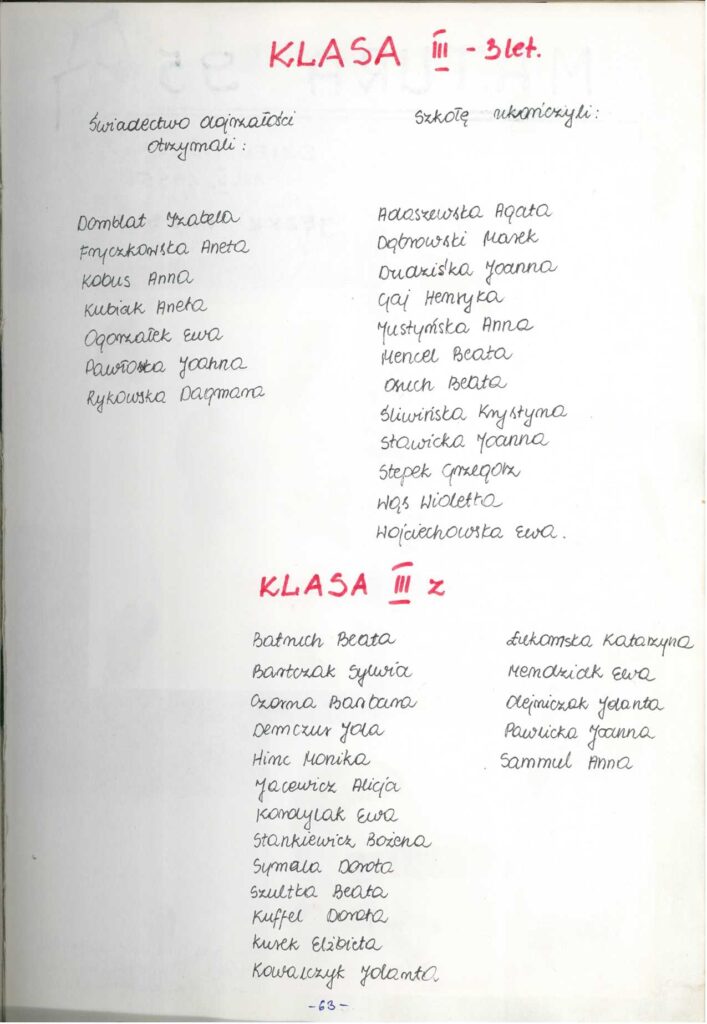 KLASA III - 3 let.
Świadectwo dojrzałości
otrzymali :
Domblat Izabela
Fryczkowska Aneta
Kobus Anna
Kubiak Aneta
Ogorzałek Ewa
Pawłoska Joanna
Rykowska Dagmara
Szkołę ukończyli :
Adaszewska Agata
Dąbrowski Marek
Drudziśka Joanna
Gaj Henryka
Justyńska Anna
Mencel Beata
Beata
Śliwińska Krystyna
Stawicka Joanna
Stepek Grzegorz
Wąs Wioletta
Wojciechowska Ewa.
KLASA III z
Beata
Bartczak Sylwia
Czarna Barbara
Demczur Jola
Hinc Monika
Jacewicz Alicja
Kordylak Ewa
Stankiewicz Bożena
Symala Dorota
Szultka Beata
Kuffel Dorota
Kurek Elżbieta
Kowalczyk Jolanta
Łukomska Katarzyna
Mendziak Ewa
Olejniczak Jolanta
Pawlicka Joanna
Sammul Anna
- 63 -